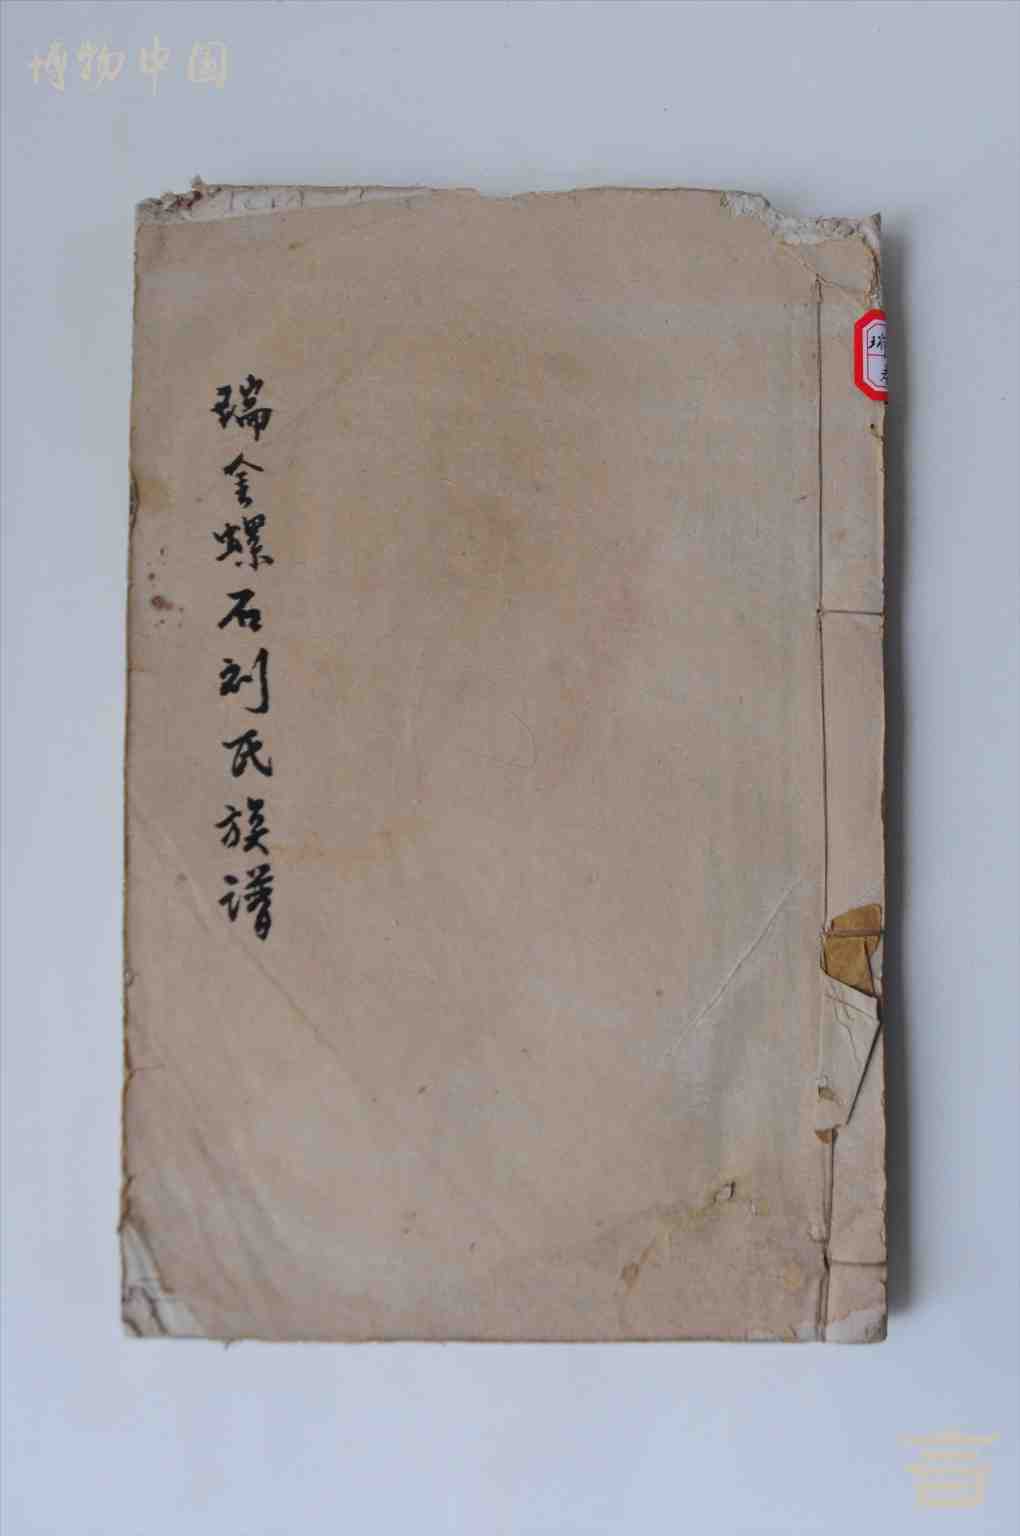 博物中国
瑞金螺石刘氏族谱
瑞